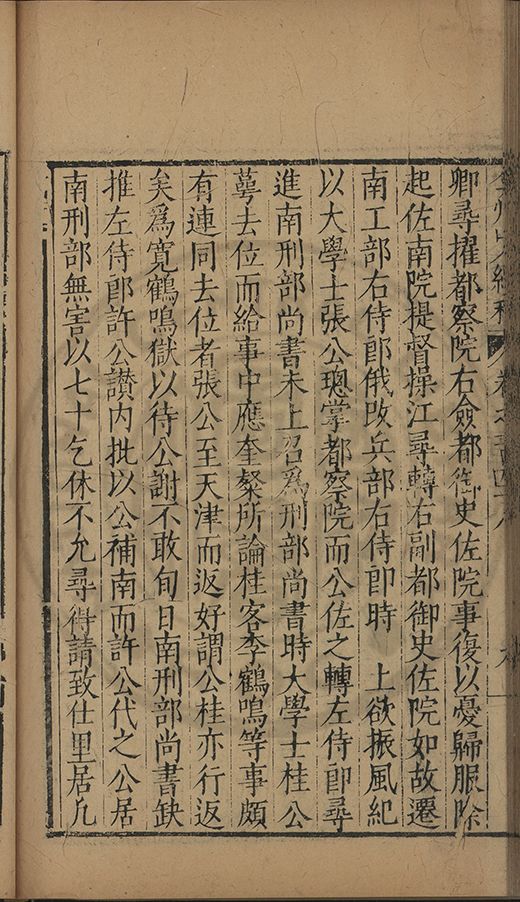 卿尋擢都察院右僉都御史佐院事復以憂歸服除
起佐南院提督操江尋轉右副都御史佐院如故遷
南工部右侍郎俄改兵部右侍郎時　上欲振風紀
以大學士張公璁掌都察院而公佐之轉左侍郎尋
進南刑部尚書未上召爲刑部尚書時大學士桂公
萼去位而給事中應奎槩所論桂客李鶴鳴等事頗
有連同去位者張公至天津而返好謂公桂亦行返
矣爲寬鶴鳴獄以待公謝不敢旬日南刑部尚書缺
推左侍郎許公讃内批以公補南而許公代之公居
南刑部無害以七十乞休不允尋得請致仕里居凡